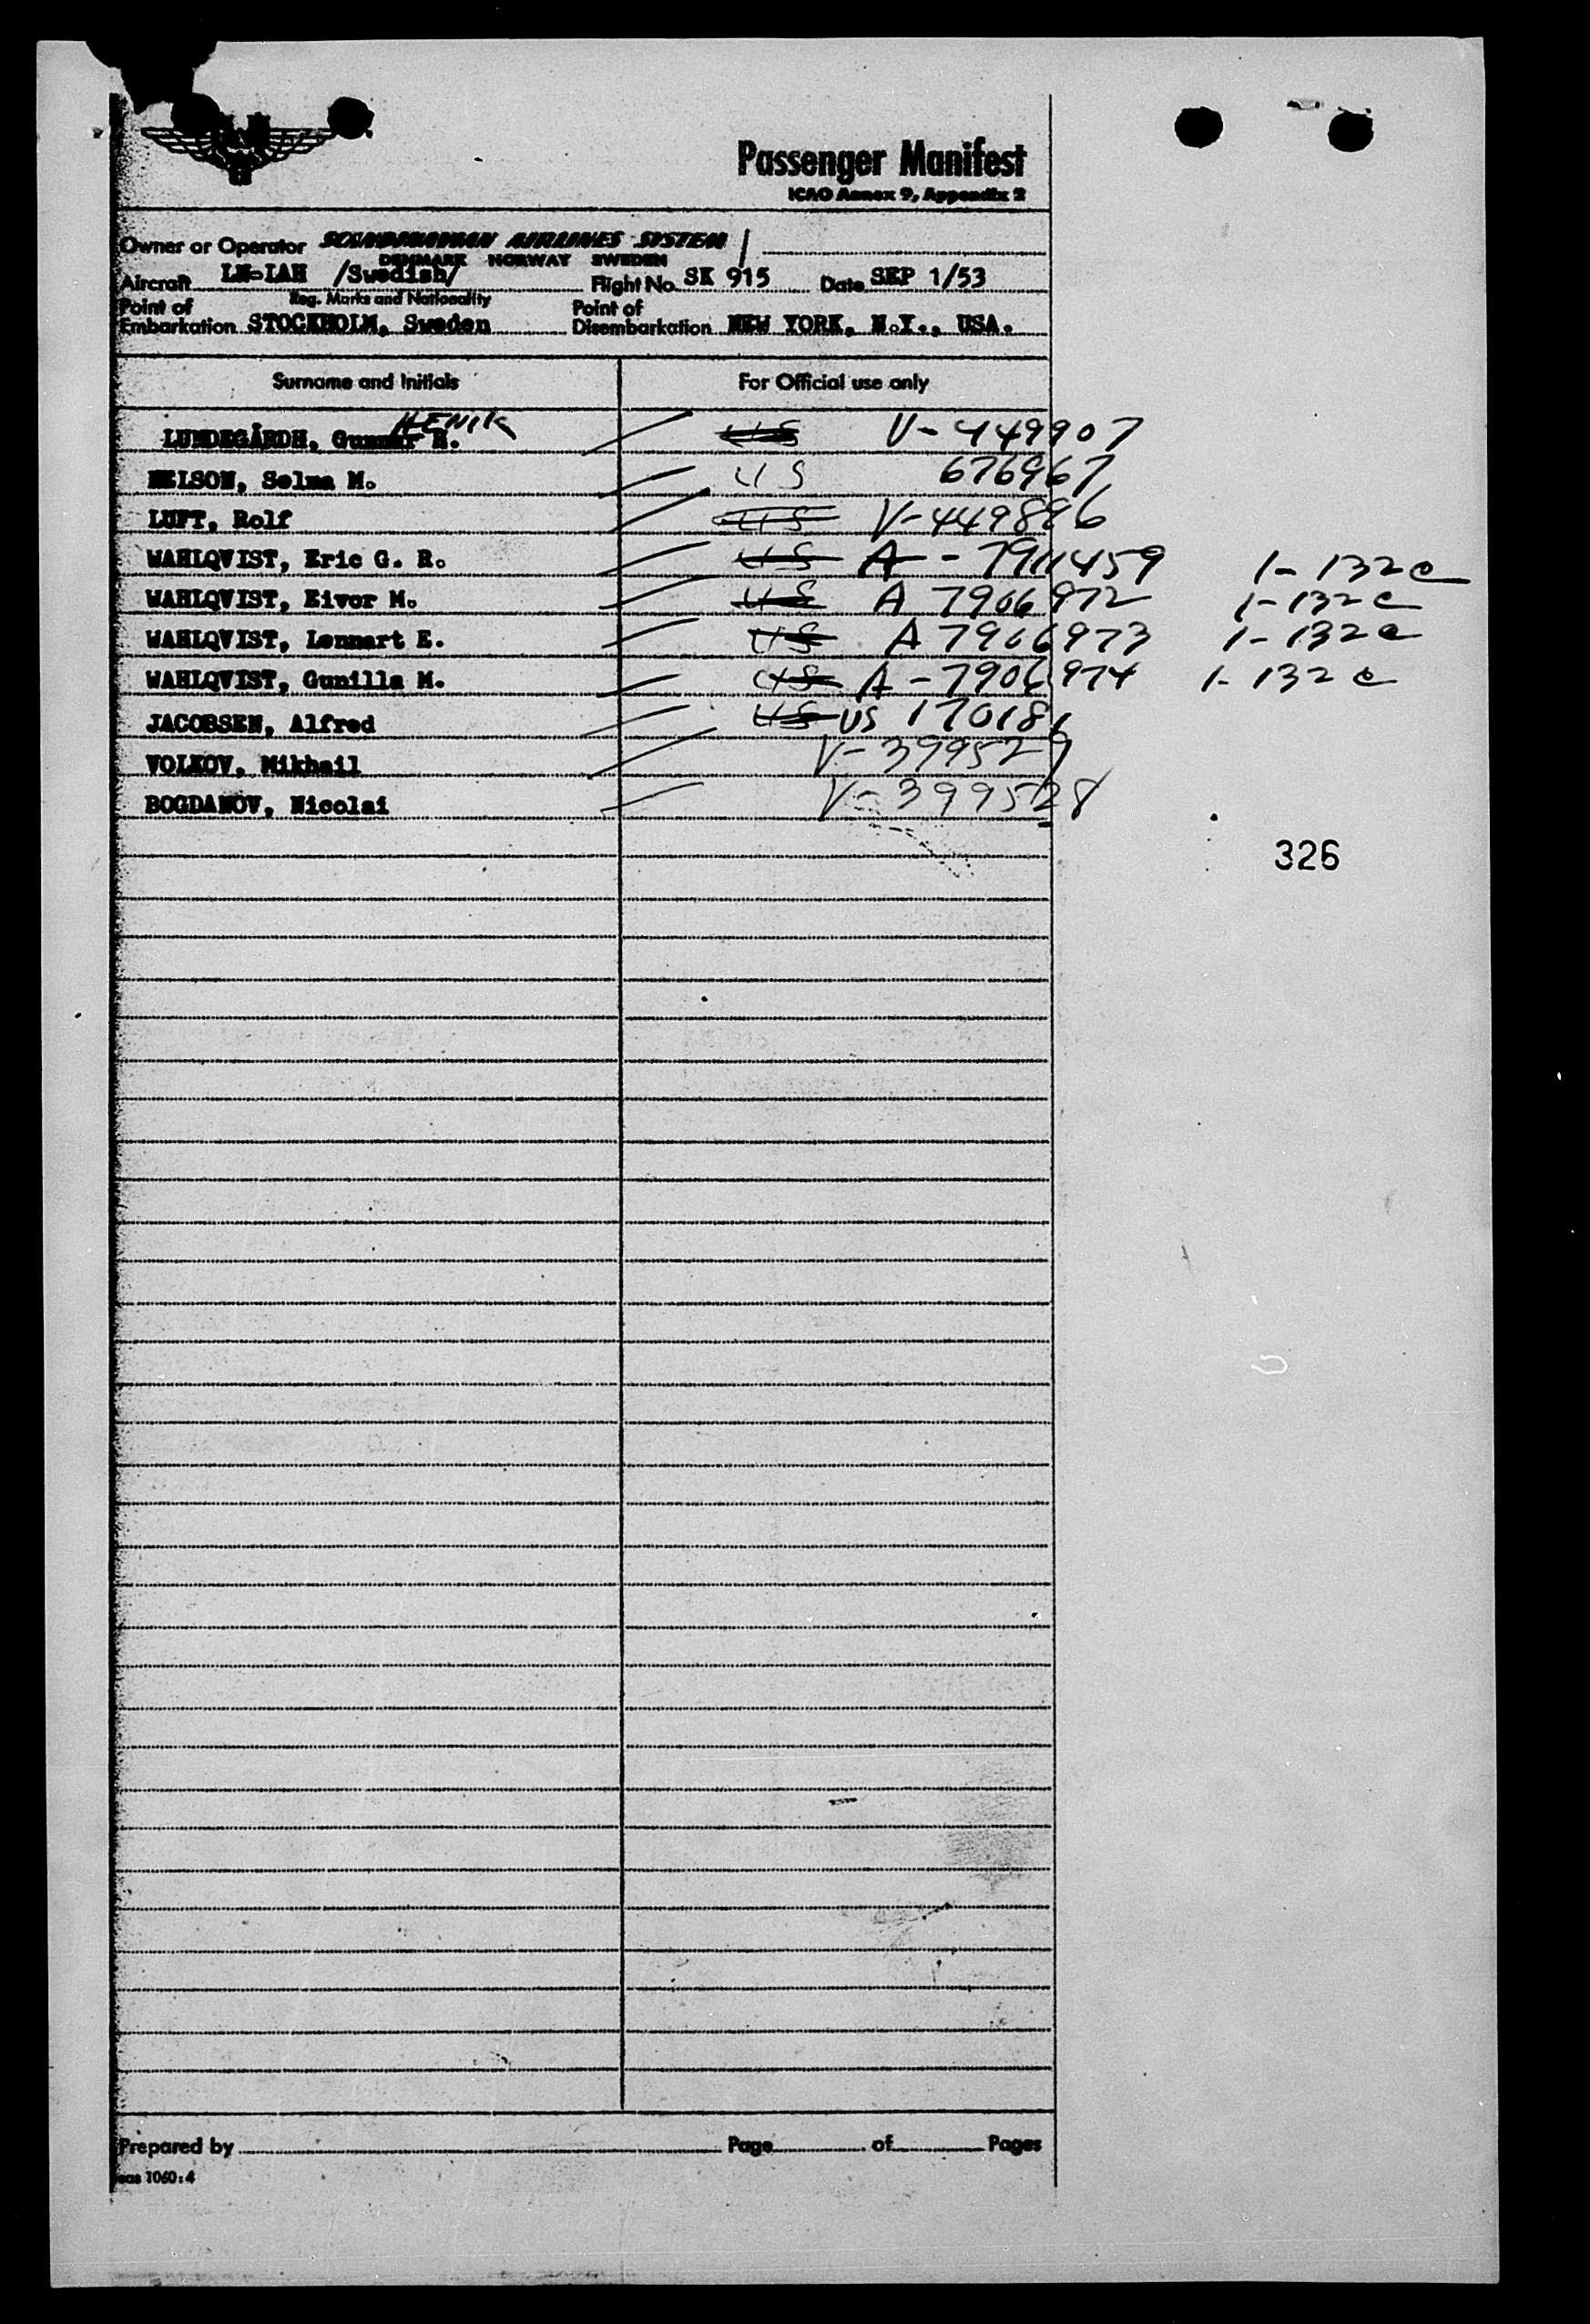 Passenger Manifest
ICAO Annex 9, Appendix 2
Owner or Operator SCANDINAVIAN AIRLINES SYSTEM
DENMARK NORWAY SWEDEN
Aircraft LN-LAH /Swedish/ Flight No. SK 915 Date SEP 1/53
Reg. Marks and Nationality
Point of Embarkation STOCKHOLM, Sweden Point of Disembarkation NEW YORK, N.Y., USA.
Surname and Initials For Official use only
HENIK
LUNDEGÅRDH, Gunnar H. US V-449907
NELSON, Selma M. US 676967
LUFT, Rolf US V-449896
WAHLQVIST, Eric G. R. US A-7911459 1-132c
WAHLQVIST, Eivor M. US A 7906972 1-132c
WAHLQVIST, Lennart E. US A 7906973 1-132c
WAHLQVIST, Gunilla M. US A-7906974 1-132c
JACOBSEN, Alfred US US 170181
VOLKOV, Mikhail V-399529
BOGDANOV, Nicolai V-399528
326
Prepared by Page of Pages
sas 1060:4